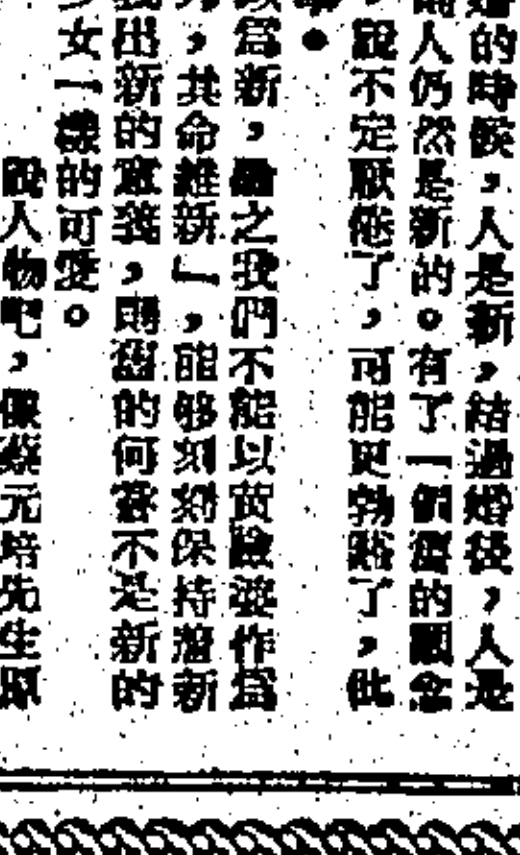 的時候，人是新，結過婚後，人是
人仍然是新的。有了一個舊的觀念
，說不定厭倦了，可能更勃谿了，此
爲新，之我們不能以黃臉婆作爲
，其命維新」，能够刻刻保持着新
出新的意義，則舊的何嘗不是新的
女一樣的可愛。
說人物吧，像蔡元培先生原